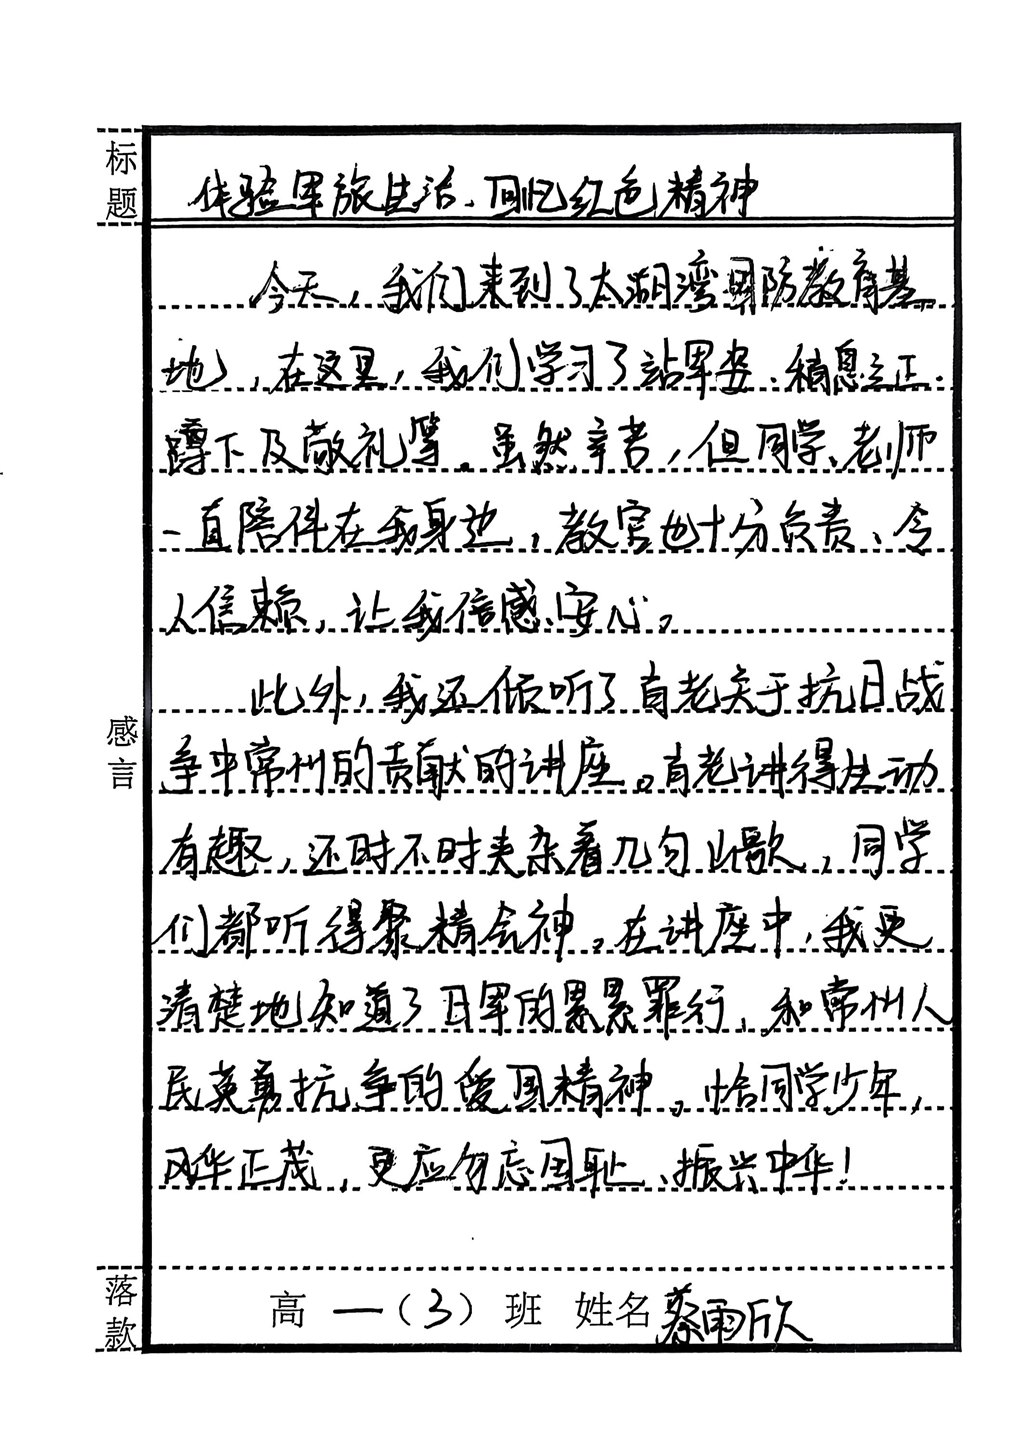 标题
体验军旅生活、回忆红色精神
今天，我们来到了太湖湾国防教育基
地，在这里，我们学习了站军姿、稍息立正、
蹲下及敬礼等。虽然辛苦，但同学、老师
一直陪伴在我身边，教官也十分负责、令
人信赖，让我倍感安心。
此外，我还倾听了肖老关于抗日战
争中常州的贡献的讲座。肖老讲得生动
有趣，还时不时夹杂着几句山歌，同学
们都听得聚精会神。在讲座中，我更
清楚地知道了日军的累累罪行，和常州人
民英勇抗争的爱国精神。恰同学少年，
风华正茂，更应勿忘国耻、振兴中华！
感言
落款
高 一（3）班 姓名 蔡雨欣